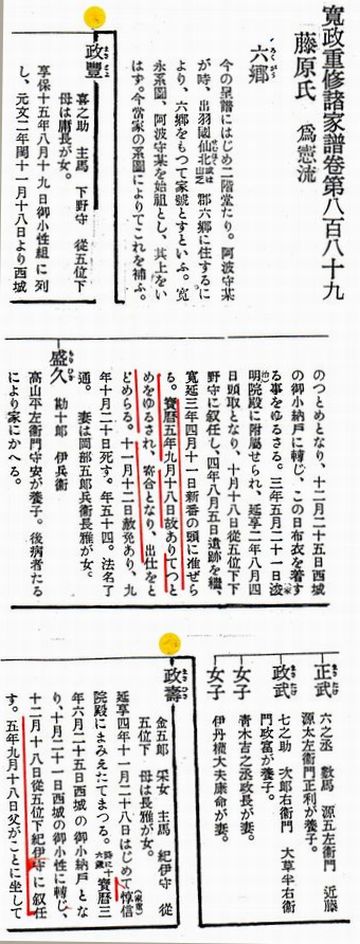 寛政重修諸家譜卷第八百八十九
藤原氏 爲憲流
六郷
ろくがう
今の呈譜にはじめ二階堂たり。阿波守某
が時、出羽國仙北郡六郷に住するに
より、六郷をもつて家號とすといふ。寛
永系圖、阿波守某を始祖とし、其上をい
はず。今當家の系圖によりてこれを補ふ。
政豐
まさとよ
喜之助 主馬 下野守 從五位下
母は庸長が女。
享保十五年八月十九日御小性組に列
し、元文二年閏十一月十八日より西城
のつとめとなり、十二月二十五日西城
の御小納戸に轉じ、この日布衣を着す
る事をゆるさる。三年五月二十一日浚
明院殿に附屬せられ、延享二年八月四
日頭取となり、十月十八日從五位下下
野守に叙任し、四年八月五日遺跡を繼、
寛延三年四月十一日新番の頭に准ぜら
る。寶暦五年九月十八日故ありてつと
めをゆるされ、寄合となり、出仕をと
どめらる。十一月十二日赦免あり、九
年十月二十日死す。年五十四。法名了
通。 妻は岡部五郎兵衞長雅が女。
盛久
もりひさ
勘十郎 伊兵衞
高山平左衞門守安が養子。後病者たる
により家にかへる。
正武
まさたけ
六之丞 數馬 源五左衞門 近藤
源太左衞門正利が養子。
政武
まさたけ
七之助 次郎右衞門 大草半右衞
門政富が養子。
女子
靑木吉之丞政長が妻。
女子
伊丹權大夫康命が妻。
政壽
金五郎 采女 主馬 紀伊守 從
五位下 母は長雅が女。
延享四年十一月二十八日はじめて惇信
(家重)
院殿にまみえたてまつる。時に十六歳 寶暦三
年六月二十五日西城の御小納戸とな
り、十月二十一日西城の御小性に轉じ、
十二月十八日從五位下紀伊守に叙任
す。五年九月十八日父がことに坐して